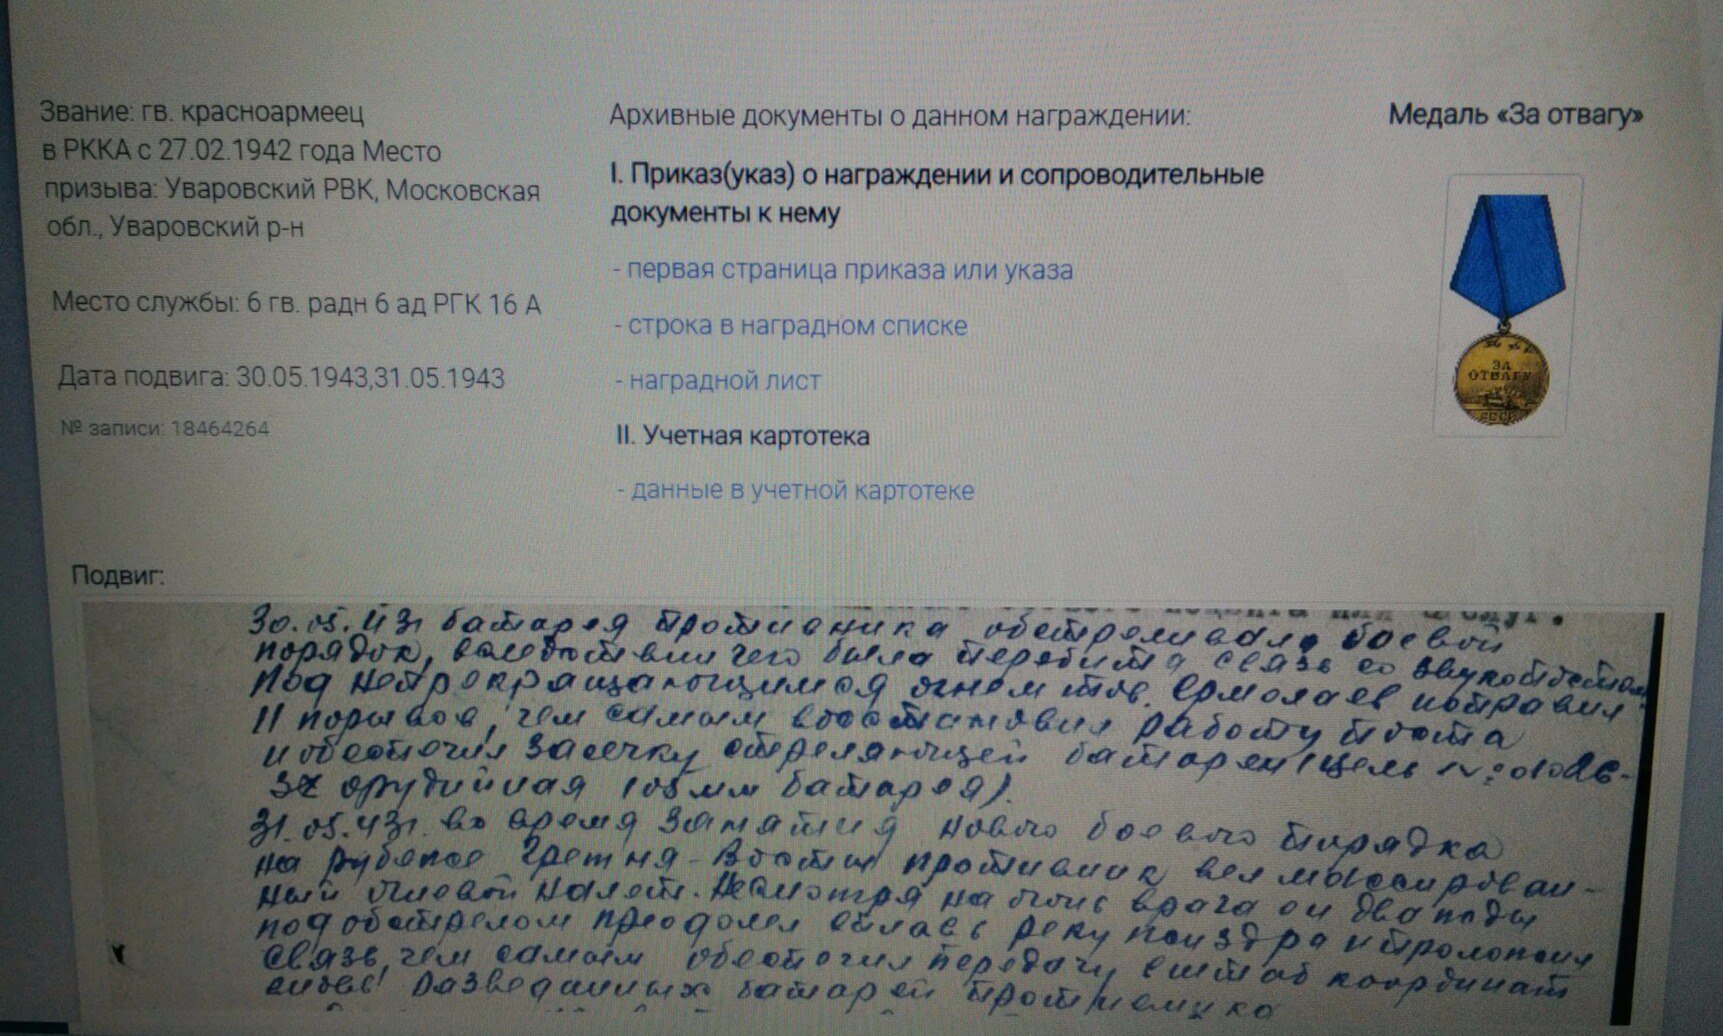 Звание: гв. красноармеец
в РККА с 27.02.1942 года Место
призыва: Уваровский РВК, Московская
обл., Уваровский р-н
Место службы: 6 гв. радн 6 ад РГК 16 А
Дата подвига: 30.05.1943,31.05.1943
№ записи: 18464264
Архивные документы о данном награждении:
I. Приказ(указ) о награждении и сопроводительные
документы к нему
- первая страница приказа или указа
- строка в наградном списке
- наградной лист
II. Учетная картотека
- данные в учетной картотеке
Медаль «За отвагу»
ЗА
ОТВАГУ
СССР
Подвиг:
30.05.43г батарея противника обстреливала боевой
порядок, вследствии чего была перебита связь со звукопостом
Под непрекращающимся огнем тов. Ермолаев исправил
11 порывов, чем самым восстановил работу поста
и обеспечил засечку стреляющей батареи (цель
орудийная 105 мм батарея).
31.05.43г. во время занятия нового боевого порядка
на рубеже противник вел массирован-
ный огневой налет. Несмотря на огонь врага он дважды
под обстрелом преодолел вплавь реку и проложил
связь, чем самым обеспечил передачу в штаб координат
вновь разведанных батарей противника